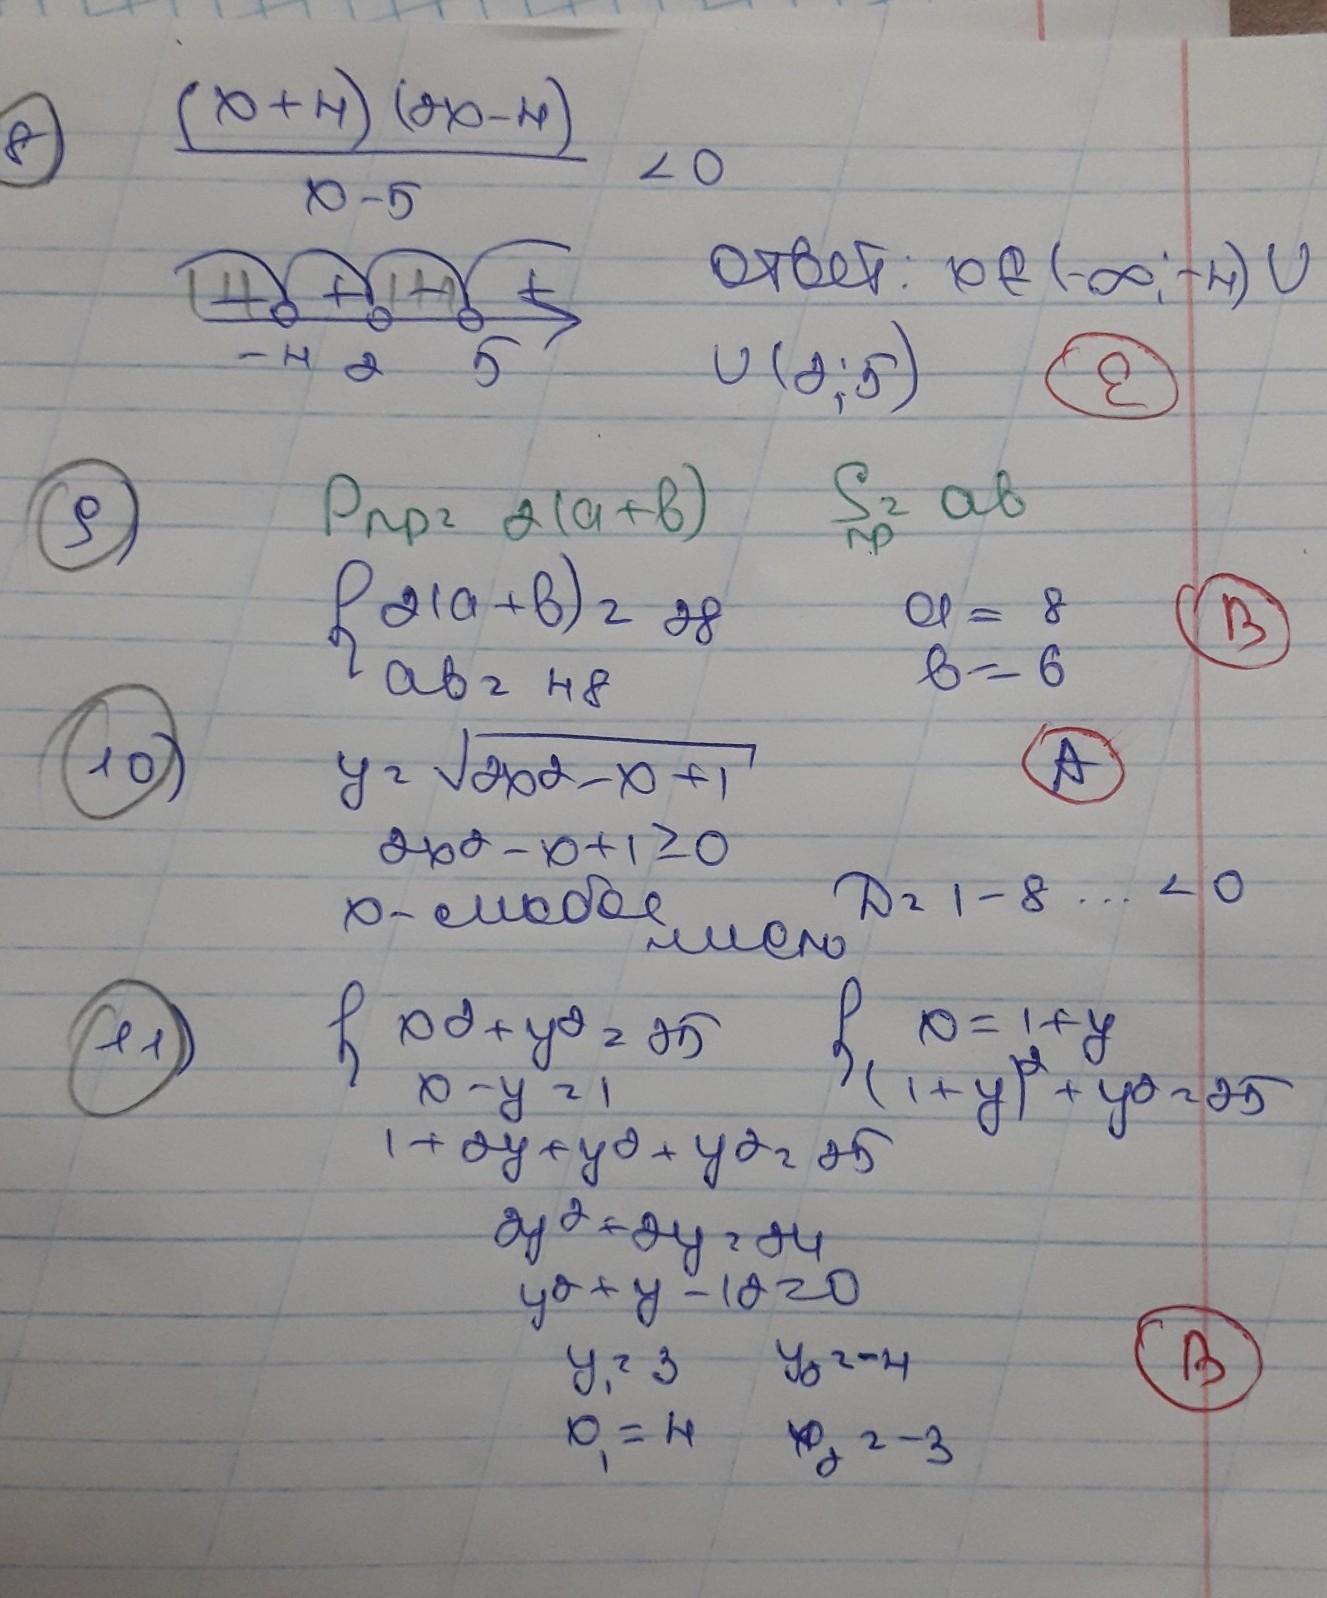 8) (x+4)(2x-4)
x-5
<0
+ + +
-4 2 5
Ответ: x∈(-∞;-4)∪
∪(2;5) E
9) Pпр= 2(a+b) Sпр= ab
{2(a+b)=28 a=8
ab=48 b=6 B
10) y=√2x2-x+1 A
2x2-x+1≥0
x-любое D=1-8...<0
число
11) {x2+y2=25 {x=1+y
x-y=1 (1+y)²+y2=25
1+2y+y2+y2=25
2y²+2y=24
y2+y-12=0
y₁=3 y₂=-4 B
x₁=4 x₂=-3